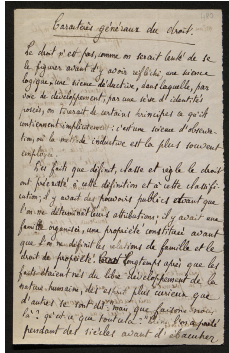 Caractères généraux du droit.
Le droit n'est pas, comme on serait tenté de se
le figurer avant d'y avoir réfléchi, une science
logique, une science déductive, dans laquelle, par
voie de développement, par une série d'identités
posées, on tirerait de certains principes ce qu'ils
contiennent implicitement ; c'est une science d'observa-
tion, où la méthode inductive est la plus souvent
employée.
Les faits que définit, classe et règle le droit
ont préexisté à cette définition et à cette classifi-
cation ; il y avait des pouvoirs publics avant que
l'on ne déterminât leurs attributions ; il y avait une
famille organisée, une propriété constituée avant
que l'on ne définît les relations de famille et le
droit de propriété. longtemps après que les
faits étaient nés du libre développement de la
nature humaine, des esprits plus curieux que
d'autres se sont dit : mais que faisons-nous
là ? qu'est-ce que tout cela ?
pendant des siècles avant d'